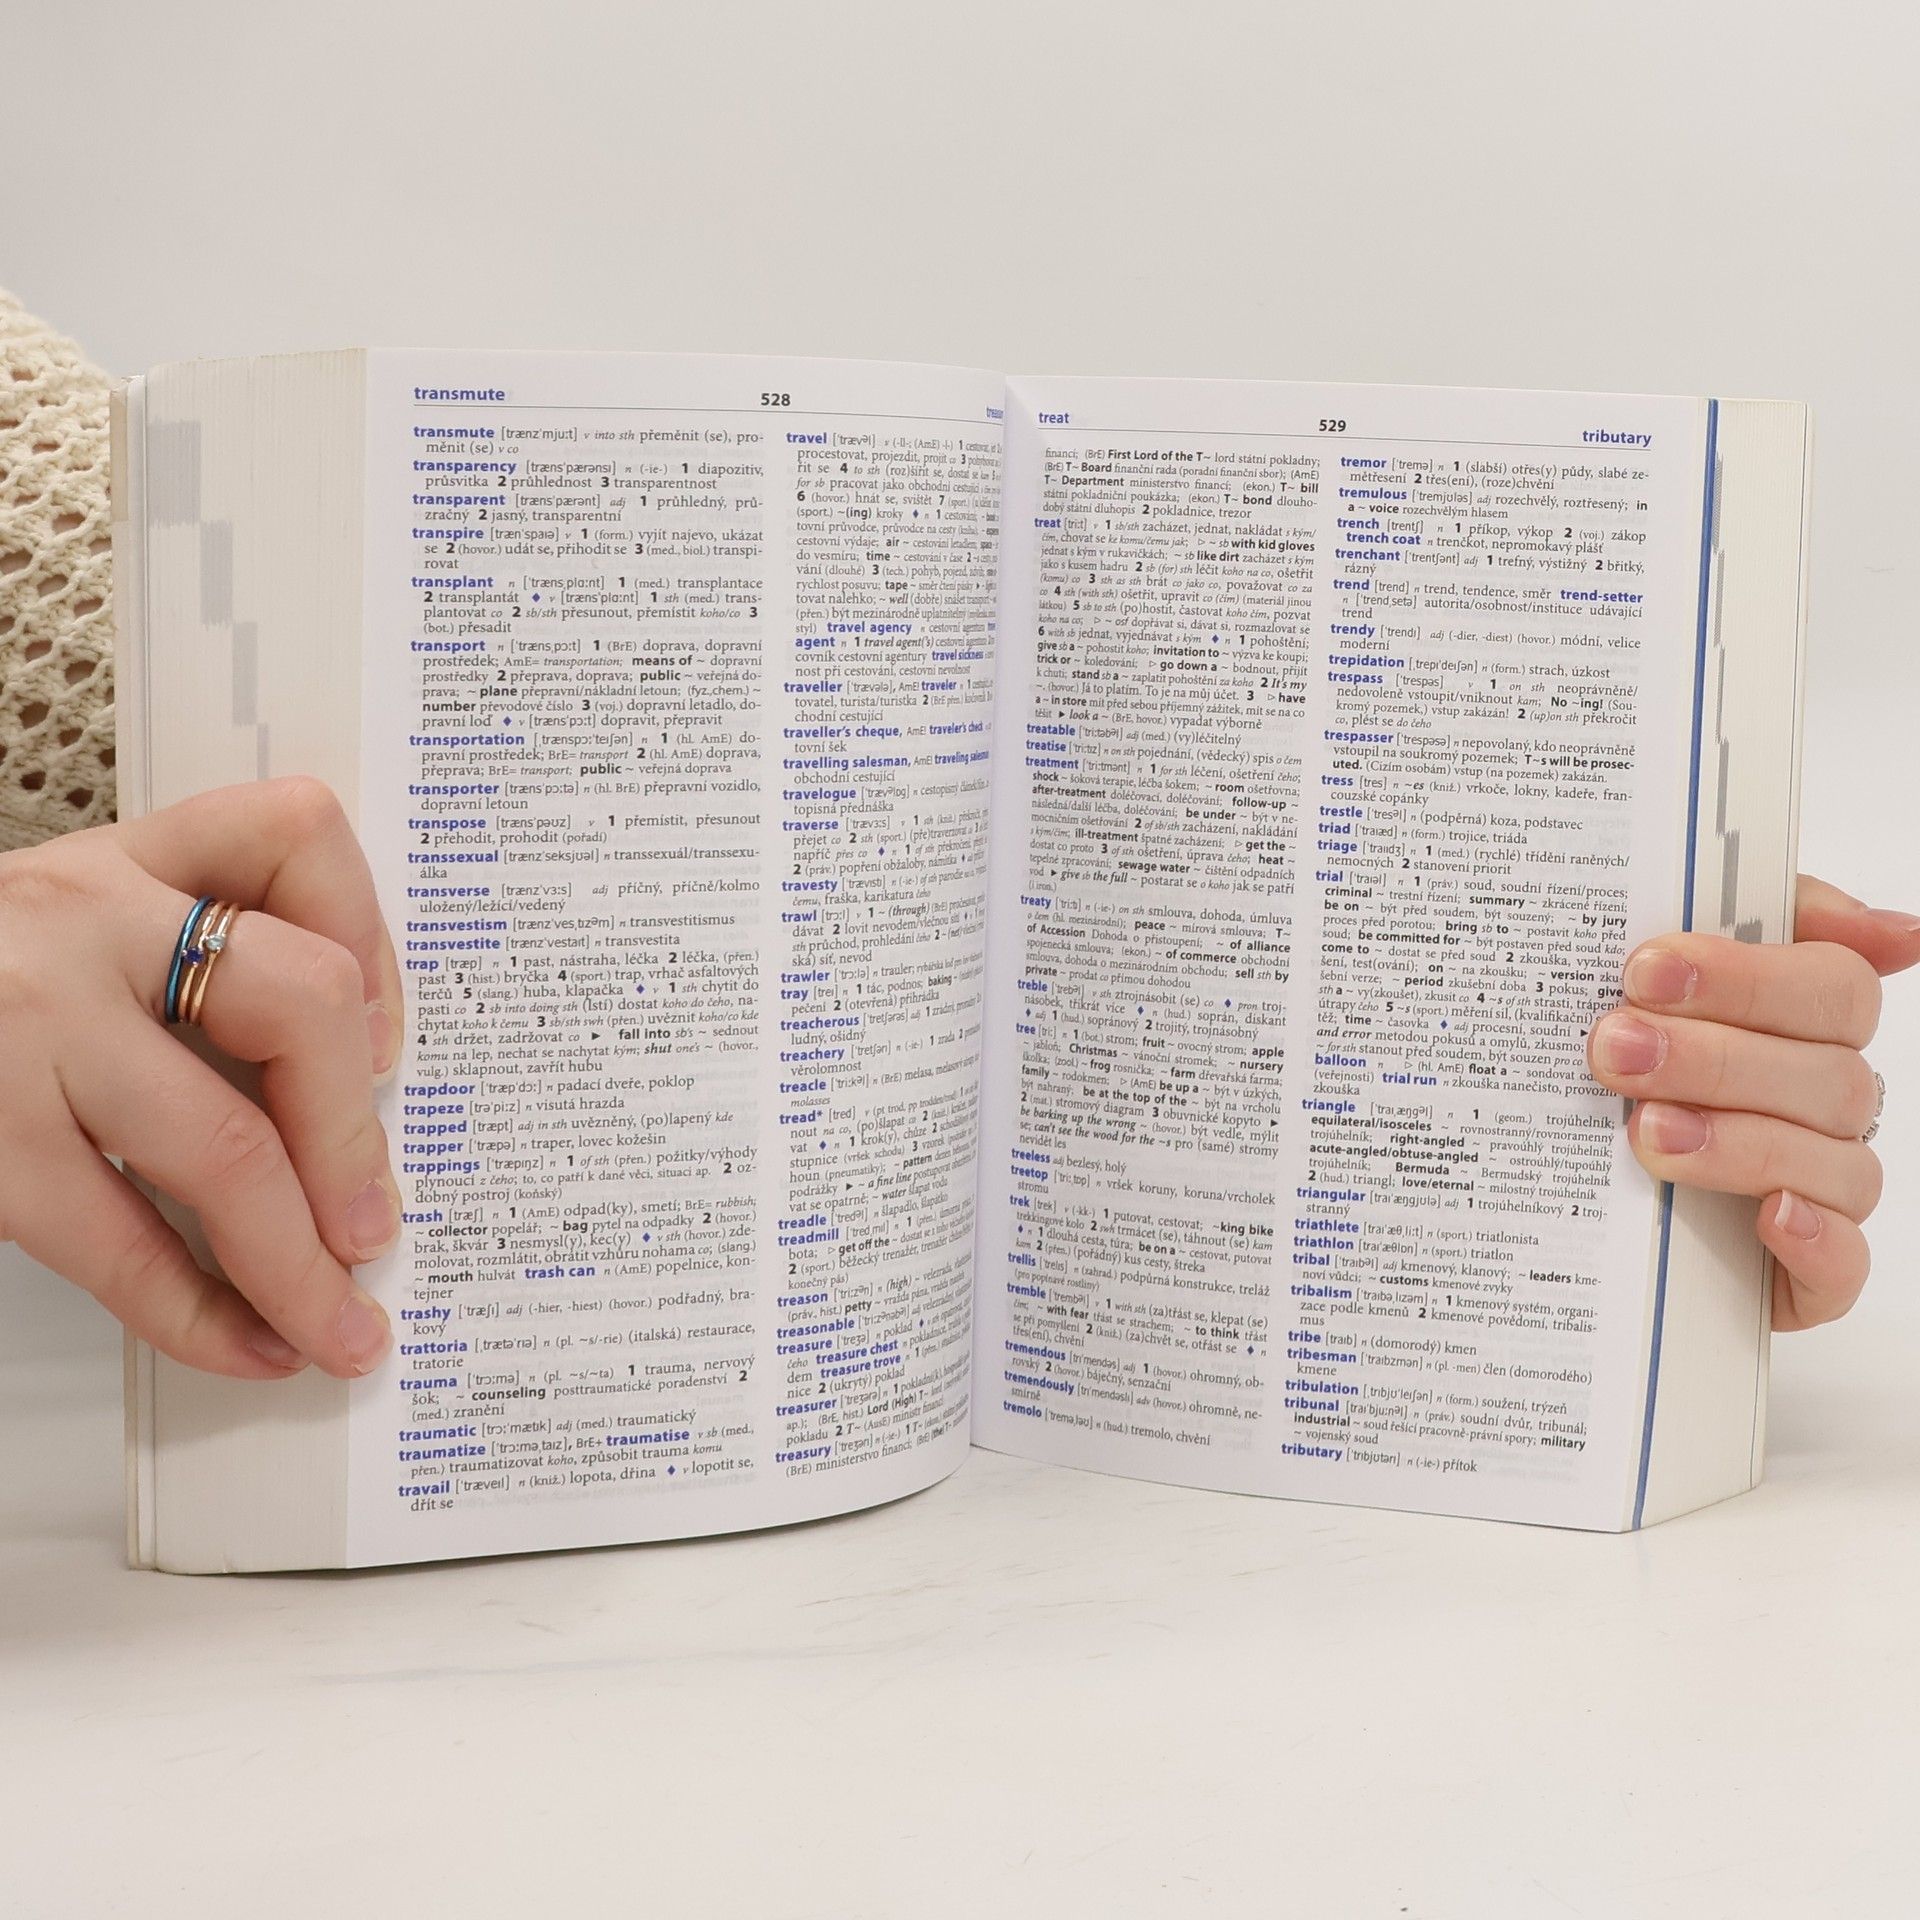 transmute
528
transmute [trænzˈmjuːt] v into sth přeměnit (se), pro-
měnit (se) v co
transparency [trænsˈpærənsɪ] n (-ie-) 1 diapozitiv,
průsvitka 2 průhlednost 3 transparentnost
transparent [trænsˈpærənt] adj 1 průhledný, prů-
zračný 2 jasný, transparentní
transpire [trænˈspaɪə] v 1 (form.) vyjít najevo, ukázat
se 2 (hovor.) udát se, přihodit se 3 (med., biol.) transpi-
rovat
transplant n [ˈtrænsˌplɑːnt] 1 (med.) transplantace
2 transplantát ♦ v [trænsˈplɑːnt] 1 sth (med.) trans-
plantovat co 2 sb/sth přesunout, přemístit koho/co 3
(bot.) přesadit
transport n [ˈtrænsˌpɔːt] 1 (BrE) doprava, dopravní
prostředek; AmE= transportation; means of ~ dopravní
prostředky 2 přeprava, doprava; public ~ veřejná do-
prava; ~ plane přepravní/nákladní letoun; (fyz.,chem.) ~
number převodové číslo 3 (voj.) dopravní letadlo, do-
pravní loď ♦ v [trænsˈpɔːt] dopravit, přepravit
transportation [ˌtrænspɔːˈteɪʃən] n 1 (hl. AmE) do-
pravní prostředek; BrE= transport 2 (hl. AmE) doprava,
přeprava; BrE= transport; public ~ veřejná doprava
transporter [trænsˈpɔːtə] n (hl. BrE) přepravní vozidlo,
dopravní letoun
transpose [trænsˈpəʊz] v 1 přemístit, přesunout
2 přehodit, prohodit (pořadí)
transsexual [trænzˈseksjʊəl] n transsexuál/transsexu-
álka
transverse [trænzˈvɜːs] adj příčný, příčně/kolmo
uložený/ležící/vedený
transvestism [trænzˈvesˌtɪzəm] n transvestitismus
transvestite [trænzˈvestaɪt] n transvestita
trap [træp] n 1 past, nástraha, léčka 2 léčka, (přen.)
past 3 (hist.) bryčka 4 (sport.) trap, vrhač asfaltových
terčů 5 (slang.) huba, klapačka ♦ v 1 sth chytit do
pasti co 2 sb into doing sth (lstí) dostat koho do čeho, na-
chytat koho k čemu 3 sb/sth swh (přen.) uvěznit koho/co kde
4 sth držet, zadržovat co ► fall into sb's ~ sednout
komu na lep, nechat se nachytat kým; shut one's ~ (hovor.,
vulg.) sklapnout, zavřít hubu
trapdoor [ˈtræpˈdɔː] n padací dveře, poklop
trapeze [trəˈpiːz] n visutá hrazda
trapped [træpt] adj in sth uvězněný, (po)lapený kde
trapper [ˈtræpə] n traper, lovec kožešin
trappings [ˈtræpɪŋz] n 1 of sth (přen.) požitky/výhody
plynoucí z čeho; to, co patří k dané věci, situaci ap. 2 oz-
dobný postroj (koňský)
trash [træʃ] n 1 (AmE) odpad(ky), smetí; BrE= rubbish;
~ collector popelář; ~ bag pytel na odpadky 2 (hovor.)
brak, škvár 3 nesmysl(y), kec(y) ♦ v sth (hovor.) zde-
molovat, rozmlátit, obrátit vzhůru nohama co; (slang.)
~ mouth hulvát trash can n (AmE) popelnice, kon-
tejner
trashy [ˈtræʃɪ] adj (-hier, -hiest) (hovor.) podřadný, bra-
kový
trattoria [ˌtrætəˈrɪə] n (pl. ~s/-rie) (italská) restaurace,
tratorie
trauma [ˈtrɔːmə] n (pl. ~s/~ta) 1 trauma, nervový
šok; ~ counseling posttraumatické poradenství 2
(med.) zranění
traumatic [trɔːˈmætɪk] adj (med.) traumatický
traumatize [ˈtrɔːməˌtaɪz], BrE+ traumatise v sb (med.,
přen.) traumatizovat koho, způsobit trauma komu
travail [ˈtræveɪl] n (kniž.) lopota, dřina ♦ v lopotit se,
dřít se
travel [ˈtrævəl] v (-ll-; (AmE) -l-) 1 cestovat, jet
procestovat, projezdit, projít co 3
řit se 4 to sth (roz)šířit se, dostat se
for sb pracovat jako obchodní cestující
6 (hovor.) hnát se, svištět 7 (sport.)
(sport.) ~(ing) kroky ♦ n 1 cestování;
tovní průvodce, průvodce na cesty (kniha),
cestovní výdaje; air ~ cestování letadlem;
do vesmíru; time ~ cestování v čase 2
vání (dlouhé) 3 (tech.) pohyb, pojezd,
rychlost posuvu; tape ~ směr čtení pásky
tovat nalehko; ~ well (dobře) snášet
(přen.) být mezinárodně uplatnitelný
styl) travel agency n cestovní agentura
agent n 1 travel agent('s) cestovní agentura
covník cestovní agentury travel sickness
nost při cestování, cestovní nevolnost
traveller [ˈtrævələ], AmE traveler n 1
tovatel, turista/turistka 2 (BrE přen.)
chodní cestující
traveller's cheque, AmE traveler's check
tovní šek
travelling salesman, AmE traveling salesman
obchodní cestující
travelogue [ˈtrævəlɒg] n cestopisný
topisná přednáška
traverse [ˈtrævɜːs] v 1 sth (kniž.)
přejet co 2 sth (sport.) (pře)traverzovat
napříč přes co ♦ n 1 of sth překročení,
2 (práv.) popření obžaloby, námitka
travesty [ˈtrævɪstɪ] n (-ie-) of sth parodie
čemu, fraška, karikatura čeho
trawl [trɔːl] v 1 ~ (through) (BrE)
dávat 2 lovit nevodem/vlečnou sítí
sth průchod, prohledání čeho 2
ská) síť, nevod
trawler [ˈtrɔːlə] n trauler;
tray [treɪ] n 1 tác, podnos; baking
pečení 2 (otevřená) přihrádka
treacherous [ˈtretʃərəs] adj 1 zrádný,
ludný, ošidný
treachery [ˈtretʃən] n (-ie-) 1 zrada 2
věrolomnost
treacle [ˈtriːkəl] n (BrE) melasa,
molasses
tread* [tred] v (pt trod, pp trodden/trod)
nout na co, (po)šlapat co 2
vat ♦ n 1 krok(y), chůze 2
stupnice (vršek schodu) 3 vzorek
houn (pneumatiky); ~ pattern
podrážky ► ~ a fine line postupovat
vat se opatrně; ~ water šlapat vodu
treadle [ˈtredəl] n šlapadlo, šlapátko
treadmill [ˈtredˌmɪl] n 1 (přen.)
bota; ▷ get off the ~
2 (sport.) běžecký trenažér,
konečný pás)
treason [ˈtriːzən] n (high) ~ velezrada,
(práv., hist.) petty ~ vražda pána,
treasonable [ˈtriːzənəbl] adj
treasure [ˈtreʒə] n poklad
čeho treasure chest n
dem treasure trove n
nice 2 (ukrytý) poklad
treasurer [ˈtreʒərə] n 1 pokladní(k),
ap.); (BrE, hist.) Lord (High) T~
pokladu 2 T~ (AusE) ministr financí
treasury [ˈtreʒən] n (-ie-) 1 T~
(BrE) ministerstvo financí; (BrE)
treat
529
tributary
financí; (BrE) First Lord of the T~ lord státní pokladny;
(BrE) T~ Board finanční rada (poradní finanční sbor); (AmE)
T~ Department ministerstvo financí; (ekon.) T~ bill
státní pokladniční poukázka; (ekon.) T~ bond dlouho-
dobý státní dluhopis 2 pokladnice, trezor
treat [triːt] v 1 sb/sth zacházet, jednat, nakládat s kým/
čím, chovat se ke komu/čemu jak; ▷ ~ sb with kid gloves
jednat s kým v rukavičkách; ~ sb like dirt zacházet s kým
jako s kusem hadru 2 sb (for) sth léčit koho na co, ošetřit
(komu) co 3 sth as sth brát co jako co, považovat co za
co 4 sth (with sth) ošetřit, upravit co (čím) (materiál jinou
látkou) 5 sb to sth (po)hostit, častovat koho čím, pozvat
koho na co; ▷ ~ osf dopřávat si, dávat si, rozmazlovat se
6 with sb jednat, vyjednávat s kým ♦ n 1 pohoštění;
give sb a ~ pohostit koho; invitation to ~ výzva ke koupi;
trick or ~ koledování; ▷ go down a ~ bodnout, přijít
k chuti; stand sb a ~ zaplatit pohoštění za koho 2 It's my
~. (hovor.) Já to platím. To je na můj účet. 3 ▷ have
a ~ in store mít před sebou příjemný zážitek, mít se na co
těšit ► look a ~ (BrE, hovor.) vypadat výborně
treatable [ˈtriːtəbl] adj (med.) (vy)léčitelný
treatise [ˈtriːtɪz] n on sth pojednání, (vědecký) spis o čem
treatment [ˈtriːtmənt] n 1 for sth léčení, ošetření čeho;
shock ~ šoková terapie, léčba šokem; ~ room ošetřovna;
after-treatment doléčovací, doléčování; follow-up ~
následná/další léčba, doléčování; be under ~ být v ne-
mocničním ošetřování 2 of sb/sth zacházení, nakládání
s kým/čím; ill-treatment špatné zacházení; ▷ get the ~
dostat co proto 3 of sth ošetření, úprava čeho; heat ~
tepelné zpracování; sewage water ~ čištění odpadních
vod ► give sb the full ~ postarat se o koho jak se patří
(i iron.)
treaty [ˈtriːtɪ] n (-ie-) on sth smlouva, dohoda, úmluva
o čem (hl. mezinárodní); peace ~ mírová smlouva; T~
of Accession Dohoda o přistoupení; ~ of alliance
spojenecká smlouva; (ekon.) ~ of commerce obchodní
smlouva, dohoda o mezinárodním obchodu; sell sth by
private ~ prodat co přímou dohodou
treble [ˈtrebəl] v sth ztrojnásobit (se) co ♦ pron troj-
násobek, třikrát více ♦ n (hud.) soprán, diskant
♦ adj 1 (hud.) sopránový 2 trojitý, trojnásobný
tree [triː] n 1 (bot.) strom; fruit ~ ovocný strom; apple
~ jabloň; Christmas ~ vánoční stromek; ~ nursery
školka; (zool.) ~ frog rosnička; ~ farm dřevařská farma;
family ~ rodokmen; ▷ (AmE) be up a ~ být v úzkých,
být nahraný; be at the top of the ~ být na vrcholu
2 (mat.) stromový diagram 3 obuvnické kopyto ►
be barking up the wrong ~ (hovor.) být vedle, mýlit
se; can't see the wood for the ~s pro (samé) stromy
nevidět les
treeless adj bezlesý, holý
treetop [ˈtriːˌtɒp] n vršek koruny, koruna/vrcholek
stromu
trek [trek] v (-kk-) 1 putovat, cestovat; ~king bike
trekkingové kolo 2 swh trmácet (se), táhnout (se) kam
♦ n 1 dlouhá cesta, túra; be on a ~ cestovat, putovat
kam 2 (přen.) (pořádný) kus cesty, štreka
trellis [ˈtrelɪs] n (zahrad.) podpůrná konstrukce, treláž
(pro popínavé rostliny)
tremble [ˈtrembəl] v 1 with sth (za)třást se, klepat (se)
čím; ~ with fear třást se strachem; ~ to think třást
se při pomyšlení 2 (kniž.) (za)chvět se, otřást se ♦ n
třes(ení), chvění
tremendous [trɪˈmendəs] adj 1 (hovor.) ohromný, ob-
rovský 2 (hovor.) báječný, senzační
tremendously [trɪˈmendəslɪ] adv (hovor.) ohromně, ne-
smírně
tremolo [ˈtreməˌləʊ] n (hud.) tremolo, chvění
tremor [ˈtremə] n 1 (slabší) otřes(y) půdy, slabé ze-
mětřesení 2 třes(ení), (roze)chvění
tremulous [ˈtremjʊləs] adj rozechvělý, roztřesený; in
a ~ voice rozechvělým hlasem
trench [trentʃ] n 1 příkop, výkop 2 (voj.) zákop
trench coat n trenčkot, nepromokavý plášť
trenchant [ˈtrentʃənt] adj 1 trefný, výstižný 2 břitký,
rázný
trend [trend] n trend, tendence, směr trend-setter
n [ˈtrendˌsetə] autorita/osobnost/instituce udávající
trend
trendy [ˈtrendɪ] adj (-dier, -diest) (hovor.) módní, velice
moderní
trepidation [ˌtrepɪˈdeɪʃən] n (form.) strach, úzkost
trespass [ˈtrespəs] v 1 on sth neoprávněně/
nedovoleně vstoupit/vniknout kam; No ~ing! (Sou-
kromý pozemek,) vstup zakázán! 2 (up)on sth překročit
co, plést se do čeho
trespasser [ˈtrespəsə] n nepovolaný, kdo neoprávněně
vstoupil na soukromý pozemek; T~s will be prosec-
uted. (Cizím osobám) vstup (na pozemek) zakázán.
tress [tres] n ~es (kniž.) vrkoče, lokny, kadeře, fran-
couzské copánky
trestle [ˈtresəl] n (podpěrná) koza, podstavec
triad [ˈtraɪæd] n (form.) trojice, triáda
triage [ˈtraɪɪdʒ] n 1 (med.) (rychlé) třídění raněných/
nemocných 2 stanovení priorit
trial [ˈtraɪəl] n 1 (práv.) soud, soudní řízení/proces;
criminal ~ trestní řízení; summary ~ zkrácené řízení;
be on ~ být před soudem, být souzený; ~ by jury
proces před porotou; bring sb to ~ postavit koho před
soud; be committed for ~ být postaven před soud kdo;
come to ~ dostat se před soud 2 zkouška, vyzkou-
šení, test(ování); on ~ na zkoušku; ~ version zku-
šební verze; ~ period zkušební doba 3 pokus; give
sth a ~ vy(zkoušet), zkusit co 4 ~s of sth strasti, trápení
útrapy čeho 5 ~s (sport.) měření sil, (kvalifikační)
těž; time ~ časovka ♦ adj procesní, soudní ►
and error metodou pokusů a omylů, zkusmo;
~ for sth stanout před soudem, být souzen pro co
balloon n ▷ (hl. AmE) float a ~ sondovat
(veřejnosti) trial run n zkouška nanečisto,
zkouška
triangle [ˈtraɪˌæŋgəl] n 1 (geom.) trojúhelník;
equilateral/isosceles ~ rovnostranný/rovnoramenný
trojúhelník; right-angled ~ pravoúhlý trojúhelník;
acute-angled/obtuse-angled ~ ostroúhlý/tupoúhlý
trojúhelník; Bermuda ~ Bermudský trojúhelník
2 (hud.) triangl; love/eternal ~ milostný trojúhelník
triangular [traɪˈæŋgjʊlə] adj 1 trojúhelníkový 2 troj-
stranný
triathlete [traɪˈæθˌliːt] n (sport.) triatlonista
triathlon [traɪˈæθlɒn] n (sport.) triatlon
tribal [ˈtraɪbəl] adj kmenový, klanový; ~ leaders kme-
noví vůdci; ~ customs kmenové zvyky
tribalism [ˈtraɪbəˌlɪzəm] n 1 kmenový systém, organi-
zace podle kmenů 2 kmenové povědomí, tribalis-
mus
tribe [traɪb] n (domorodý) kmen
tribesman [ˈtraɪbzmən] n (pl. -men) člen (domorodého)
kmene
tribulation [ˌtrɪbjʊˈleɪʃən] n (form.) soužení, trýzeň
tribunal [traɪˈbjuːnəl] n (práv.) soudní dvůr, tribunál;
industrial ~ soud řešící pracovně-právní spory; military
~ vojenský soud
tributary [ˈtrɪbjʊtərɪ] n (-ie-) přítok